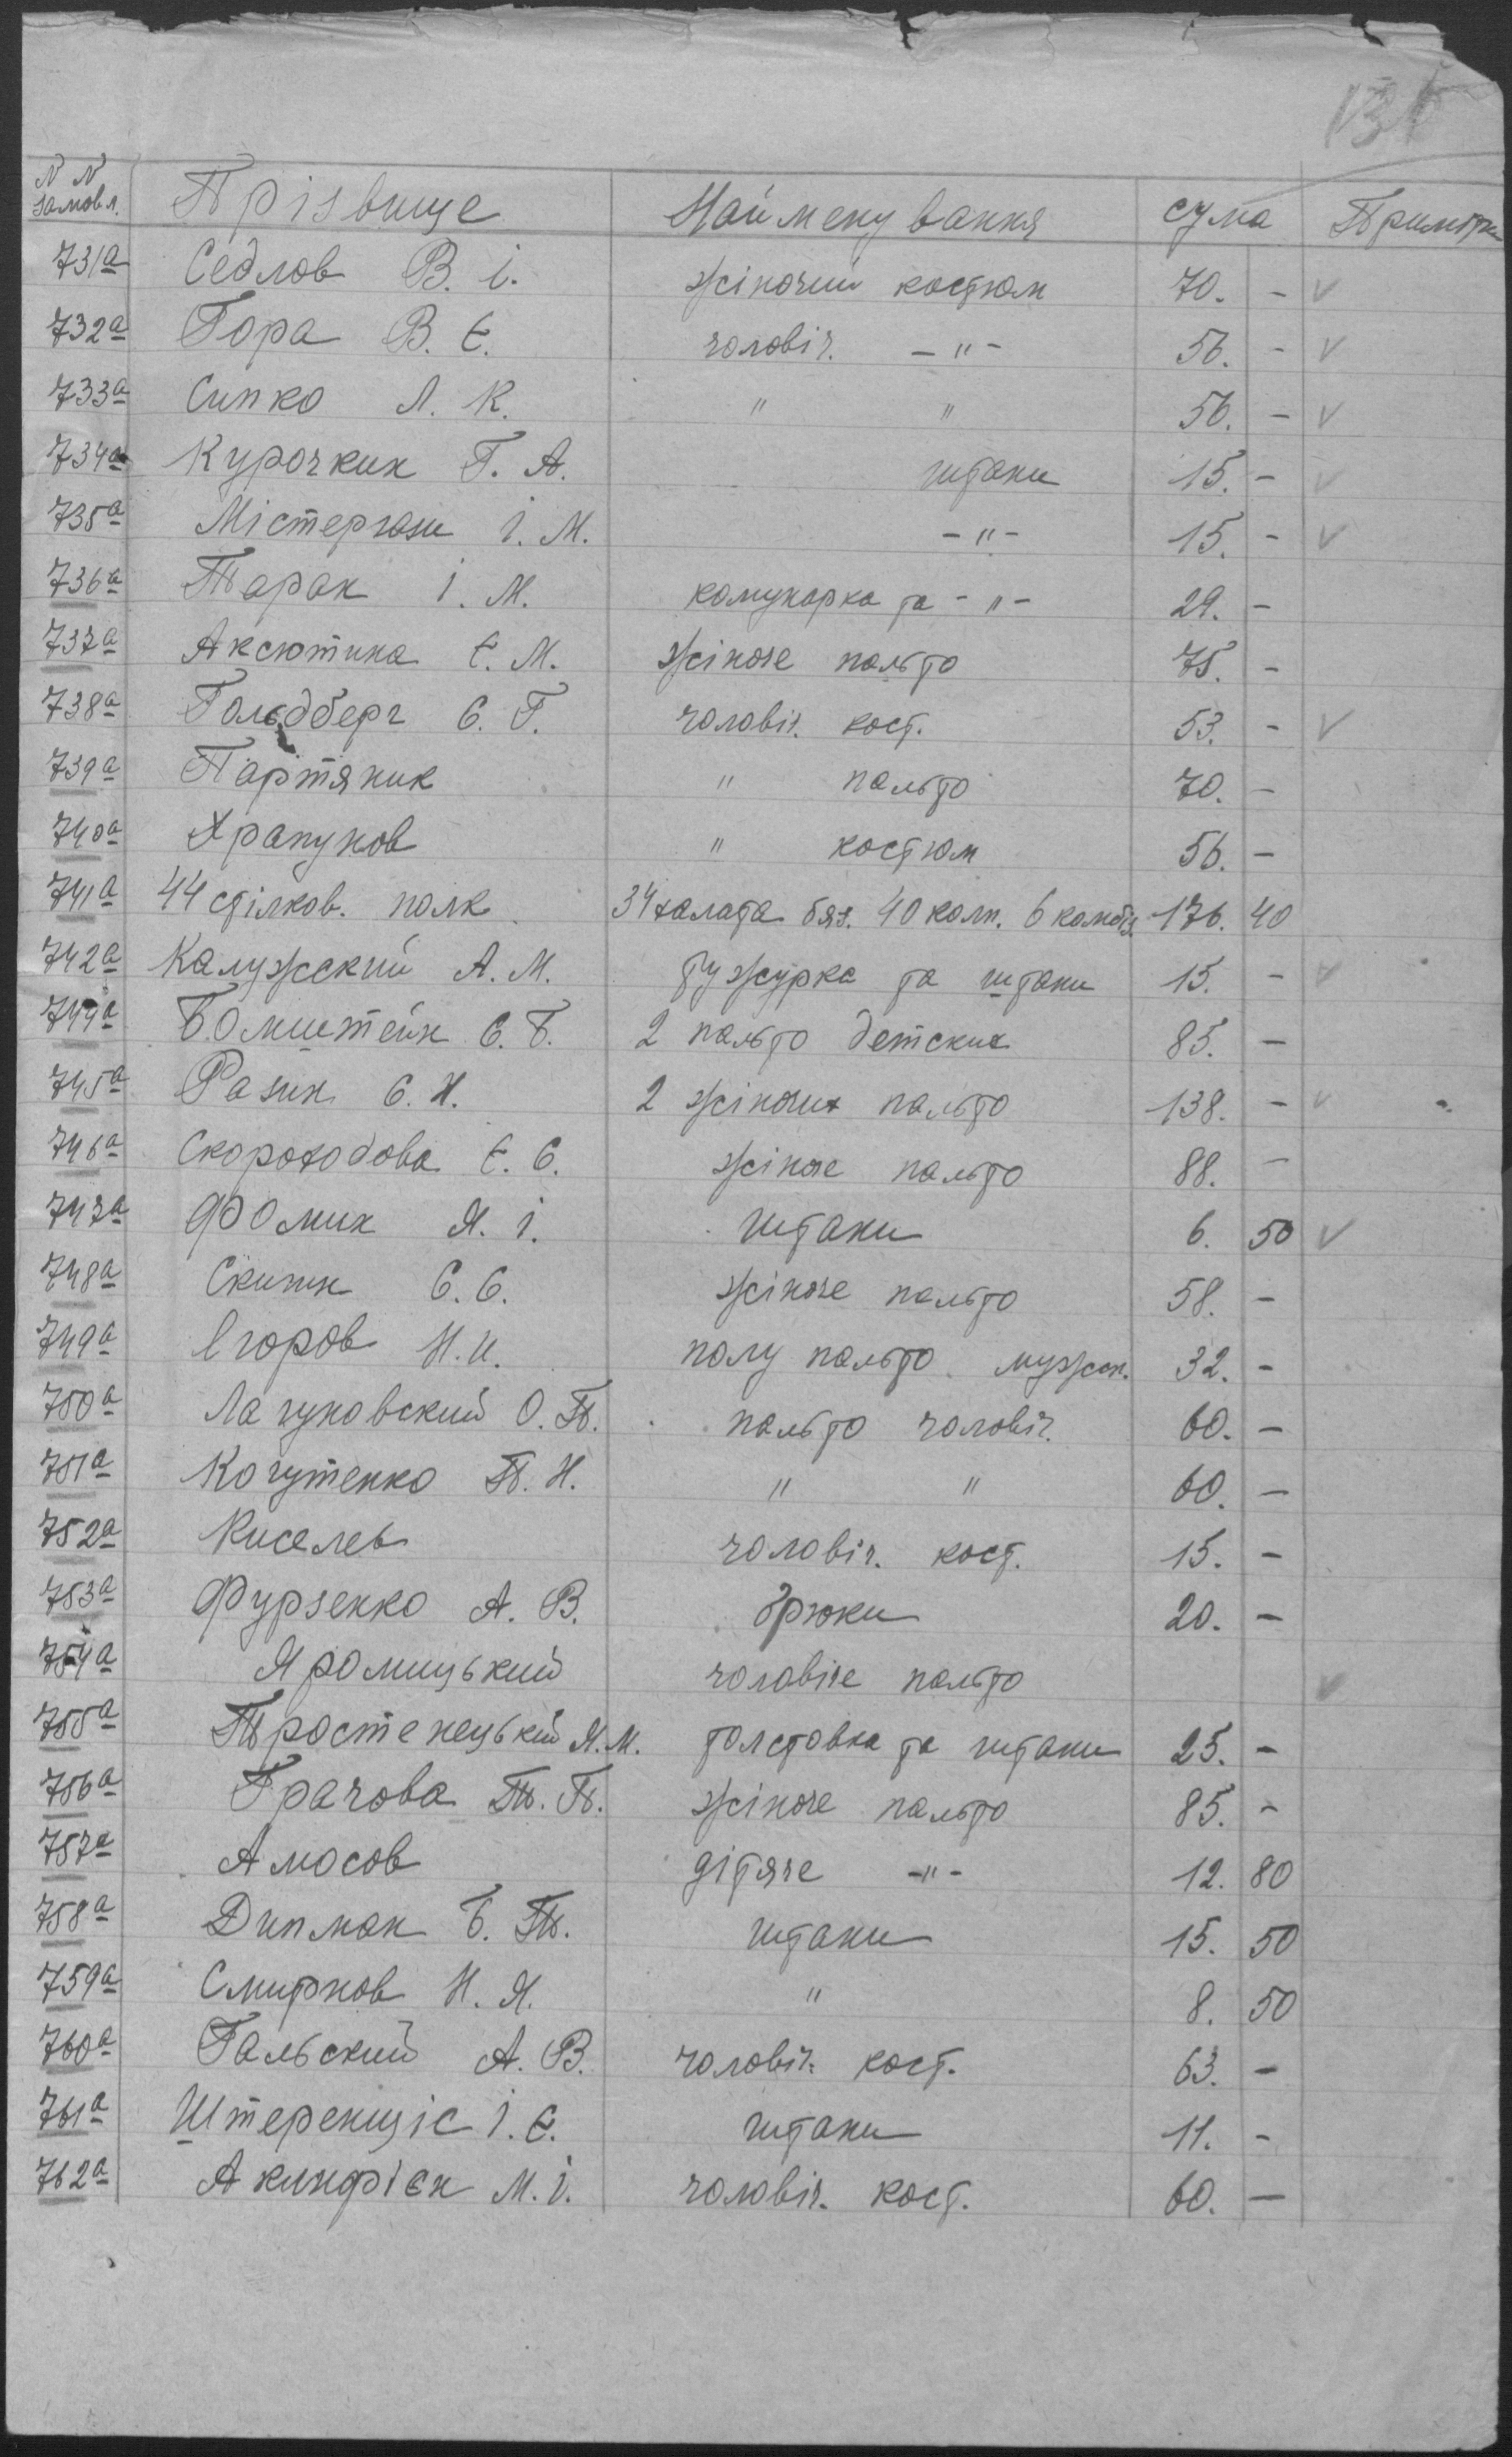 N N замовл. Прізвище Найменування сума Примітки
731а Седлов В. і. жіночий костюм 70. - v
732а Гора В. Є. чоловіч. - " - 56. - v
733а Сипко Л. К. " " 56. - v
734а Курочкин Г. А. штани 15. - v
735а Містерюк І. М. - " - 15. - v
736а Таран І. М. комунарка та - " - 29. -
737а Аксютина Є. М. жіноче пальто 75. -
738а Гольдберг С. Г. чоловіч. кост. 53. - v
739а Партяник " пальто 70. -
740а Храпунов " костюм 56. -
741а 44 стілков. полк 34 халата бяз. 40 колп. 6 комбіз. 176. 40
742а Калужский А. М. тужурка та штани 15. - v
744а Бомштейн С. Б. 2 пальто детских 85. -
745а Разин С. Н. 2 жіночих пальто 138. - v
746а Скороходова Є. С. жіноче пальто 88. -
747а Фомин Я. і. штани 6. 50 v
748а С. С. жіноче пальто 58. -
749а Єгоров Н. И. полу пальто мужск. 32. -
750а Лагуновский О. П. пальто чоловіч. 60. -
751а Когутенко П. Н. " " 60. -
752а Киселев чоловіч. кост. 15. -
753а Фурзенко А. В. брюки 20. -
754а Яромицький чоловіче пальто v
755а Тростенецький Я. М. толстовка та штани 25. -
756а Грачова Т. П. жіноче пальто 85. -
757а Амосов дітяче - " - 12. 80
758а Дипман Б. Т. штани 15. 50
759а Смирнов Н. Я. " 8. 50
760а Гальский А. В. чоловіч. кост. 63. -
761а Штеренщіс І. Є. штани 11. -
762а Акинфієн М. І. чоловіч. кост. 60. -